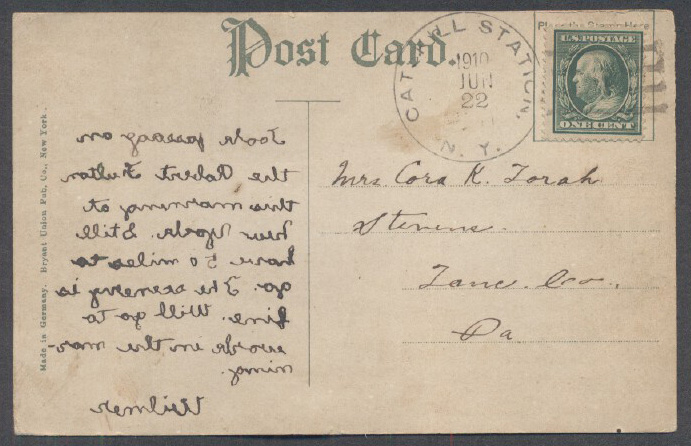 Place the Stamp Here
Post Card.
U.S. POSTAGE
ONE CENT
CATSKILL STATION,
1910
JUN
22
N. Y.
Took passag on
the Robert Fulton
this morning at
New York. Still
have 50 miles to
go. The scenery is
fine. Will go to
work in the mor-
ning
Wilmer
Mrs. Cora K.
Stevens.
Lanc. Co.,
Pa
Made in Germany. Bryant Union Pub. Co., New York.